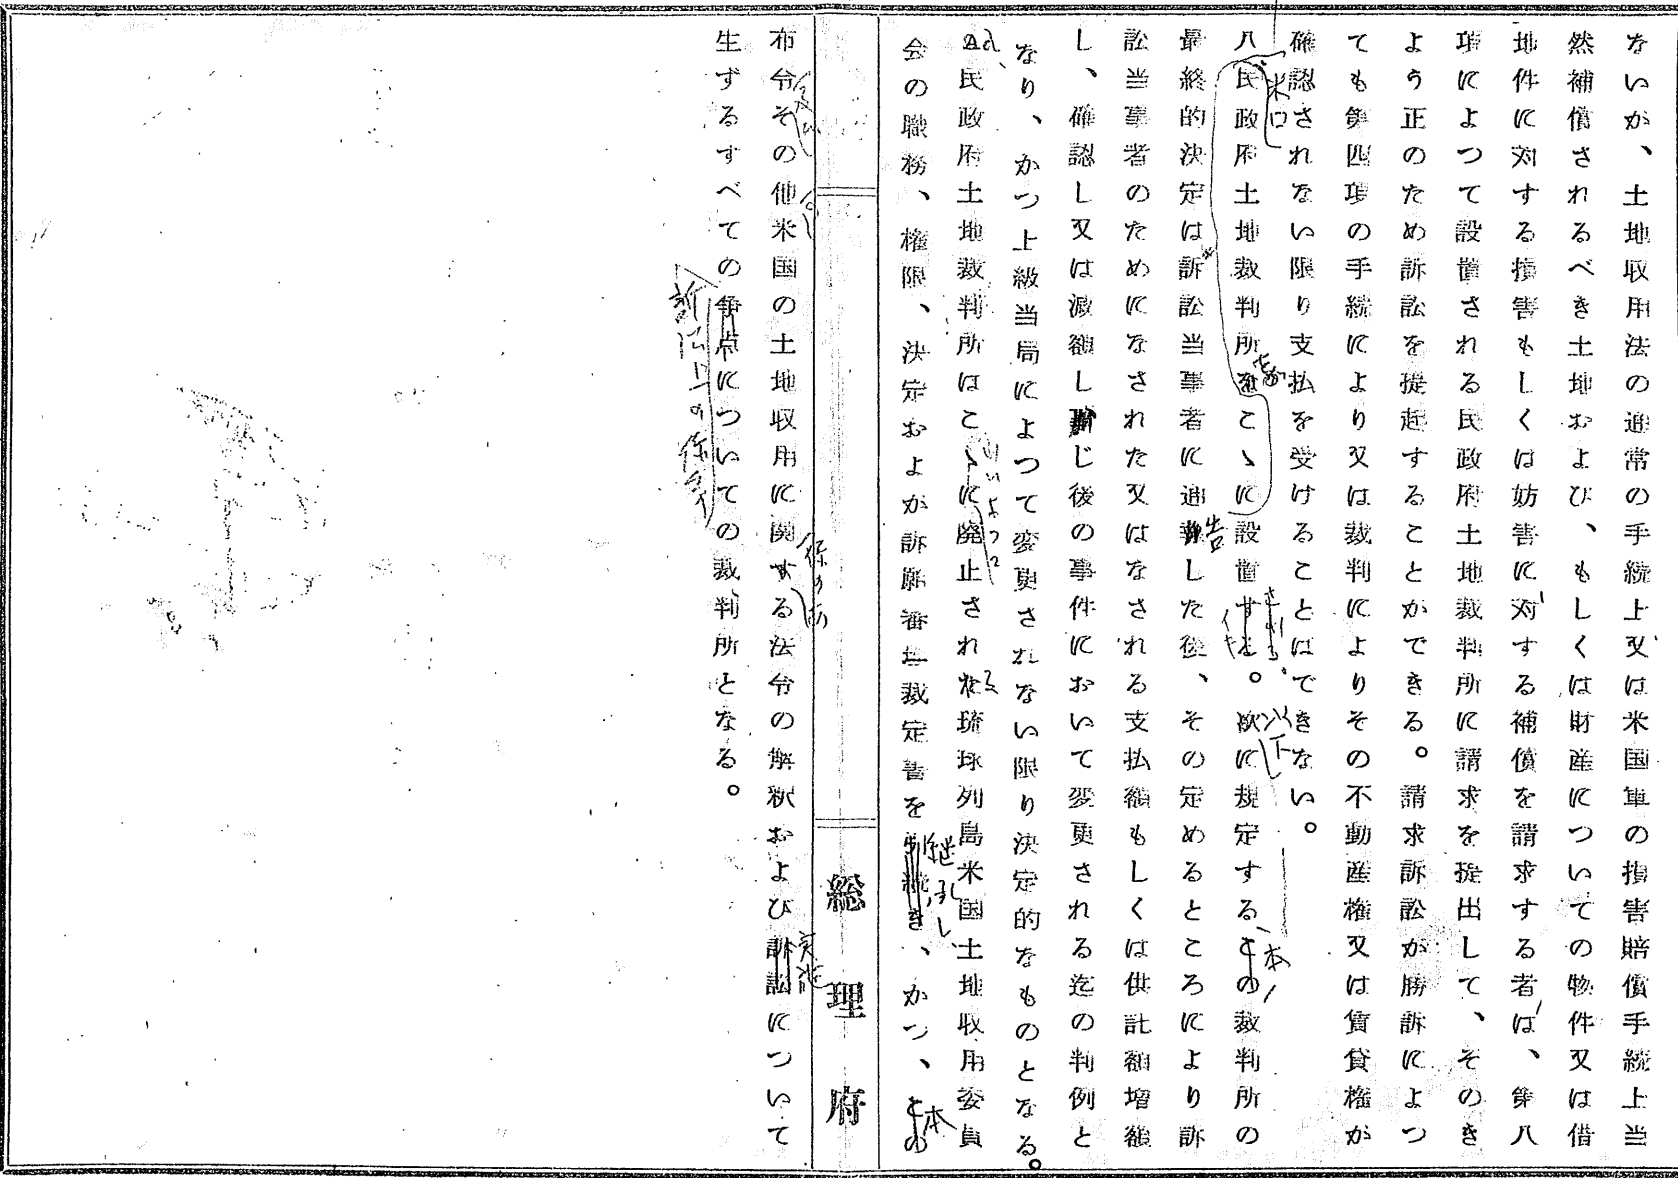 ないが、土地収用法の通常の手続上又は米国軍の損害賠償手続上当
然補償されるべき土地および、もしくは財産についての物件又は借
地件に対する損害もしくは妨害に対する補償を請求する者は、第八
項によつて設置される民政府土地裁判所に請求を提出して、そのき
よう正のため訴訟を提起することができる。請求訴訟が勝訴によつ
ても第四項の手続により又は裁判によりその不動産権又は賃貸権が
確認されない限り支払を受けることはできない。
八民政府土地裁判所をこゝに設置する。次に規定するこの裁判所の
最終的決定は訴訟当事者に通告した後、その定めるところにより訴
訟当事者のためになされた又はなされる支払額もしくは供託額増額
し、確認し又は減額し じ後の事件において変更される迄の判例と
なり、かつ上級当局によつて変更されない限り決定的なものとなる。
民政府土地裁判所はこゝに廃止され 琉球列島米国土地収用委員
会の職務、権限、決定およが訴願審 裁定書を 継承し、かつ、この
本
布令その他米国の土地収用に関する法令の解釈および訴訟について
実施
生ずるすべての争点についての裁判所となる。
総理府